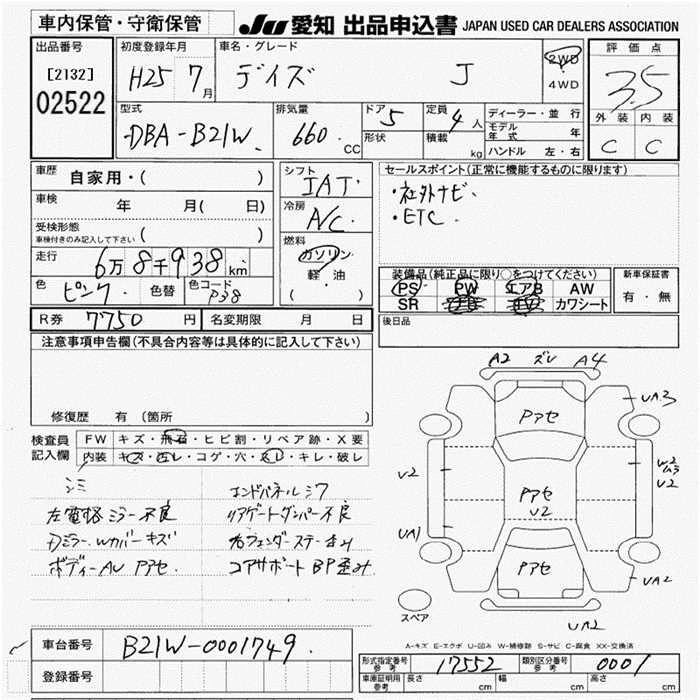 車内保管・守衛保管
JU 愛知 出品申込書 JAPAN USED CAR DEALERS ASSOCIATION
出品番号 初度登録年月 車名・グレード 評価点
[2132] H25 7月 デイズ J 2WD 4WD 3.5
02522
型式 排気量 ドア 5 定員 4人 ディーラー・並行 外装 内装
DBA-B21W 660 CC 形状 積載 kg モデル年式 年 C C
ハンドル 左・右
車歴 自家用・( ) シフト IAT セールスポイント(正常に機能するものに限ります)
車検 年 月( 日) 冷房 A/C ・社外ナビ
受検形態 ・ETC
車検付きのみ記入して下さい ( ) 燃料
走行 6万8千938km ガソリン 装備品(純正品に限り○をつけてください) 新車保証書
色 ピンク 色替 色コード P38 軽油 PS PW エアB AW 有・無
( ) SR カワシート
R券 7750円 名変期限 月 日 後日品
注意事項申告欄(不具合内容等は具体的に記入して下さい)
修復歴 有(箇所
検査員 FW キズ・飛石・ヒビ割・リペア跡・X要
記入欄 内装 キズ・汚レ・コゲ・穴・スレ・キレ・破レ
シミ エンドパネルシワ
左電格ミラー不良 リアゲートダンパー不良
Dミラー.Wカバーキズ 右フェンダーステー歪み
ボディーAU Pアセ コアサポートBP歪み
A2 ズレ A4
Pアセ UA3
U2 Pアセ U2 U2
UA1 Pアセ UA2
スペア UA2
A-キズ E-エクボ U-凹み W-補修跡 S-サビ C-腐食 XX-交換済
車台番号 B21W-0001749
登録番号
型式指定番号 参考 17552 類別区分番号 参考 0001
車庫証明用 参考 長さ cm 幅 cm 高さ cm